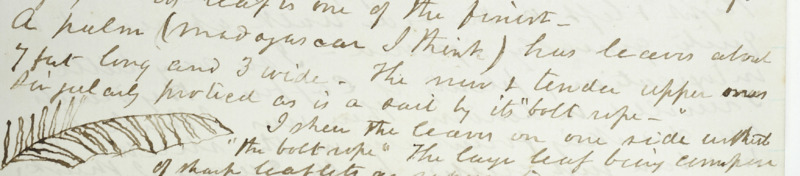 leaf is one of the finest -
A palm (Madagascar I think) has leaves about
7 feet long and 3 wide - The new & tender upper ones
singularly protected as is a sail by its "bolt rope - "
I shew the leaves on one side without
"the bolt rope" The large leaf being compose
of sharp leaflets as